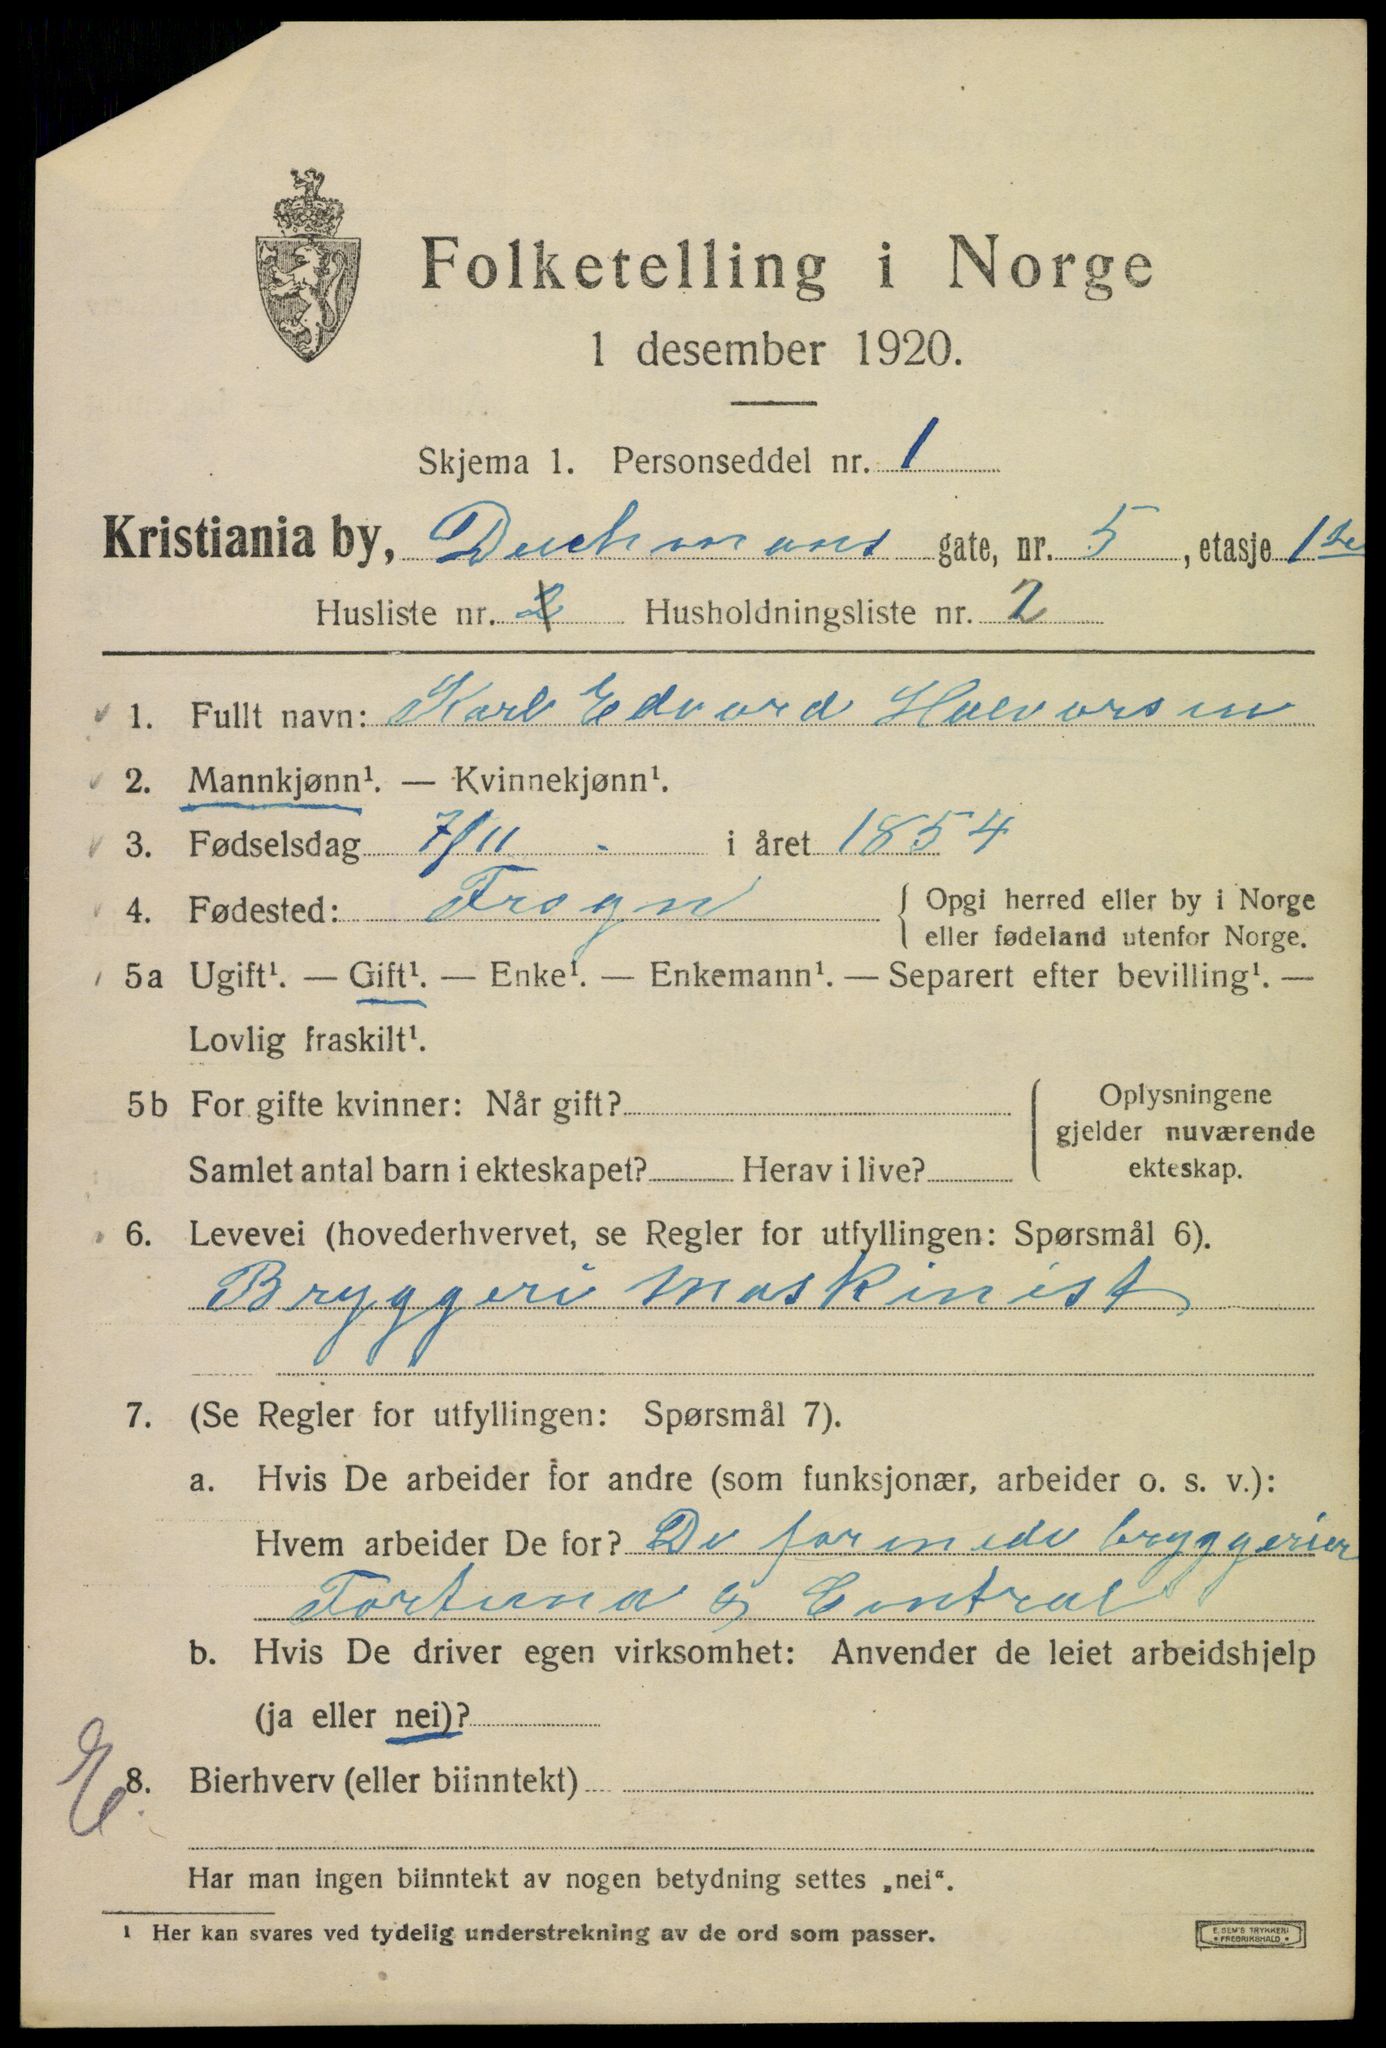 Folketelling i Norge
1 desember 1920.
Skjema 1. Personseddel nr. 1
Kristiania by, Deichmans gate, nr. 5, etasje 1ste
Husliste nr. 2 Husholdningsliste nr. 2
1. Fullt navn: Karl Edvard Halvorsen
2. Mannkjønn¹. — Kvinnekjønn¹.
3. Fødselsdag 7/11 - i året 1854
4. Fødested: Frogn { Opgi herred eller by i Norge
eller fødeland utenfor Norge.
5a Ugift¹. — Gift¹. — Enke¹. — Enkemann¹. — Separert efter bevilling¹. —
Lovlig fraskilt¹.
5b For gifte kvinner: Når gift? { Oplysningene
gjelder nuværende
Samlet antal barn i ekteskapet? Herav i live? ekteskap.
6. Levevei (hovederhvervet, se Regler for utfyllingen: Spørsmål 6).
Bryggeri maskinist
7. (Se Regler for utfyllingen: Spørsmål 7).
a. Hvis De arbeider for andre (som funksjonær, arbeider o. s. v.):
Hvem arbeider De for? De forenede bryggerier
Fortuna & Central
b. Hvis De driver egen virksomhet: Anvender de leiet arbeidshjelp
(ja eller nei)?
E.
8. Bierhverv (eller biinntekt)
Har man ingen biinntekt av nogen betydning settes „nei“.
1 Her kan svares ved tydelig understrekning av de ord som passer.
E. SEM'S TRYKKERI
• FREDRIKSHALD •